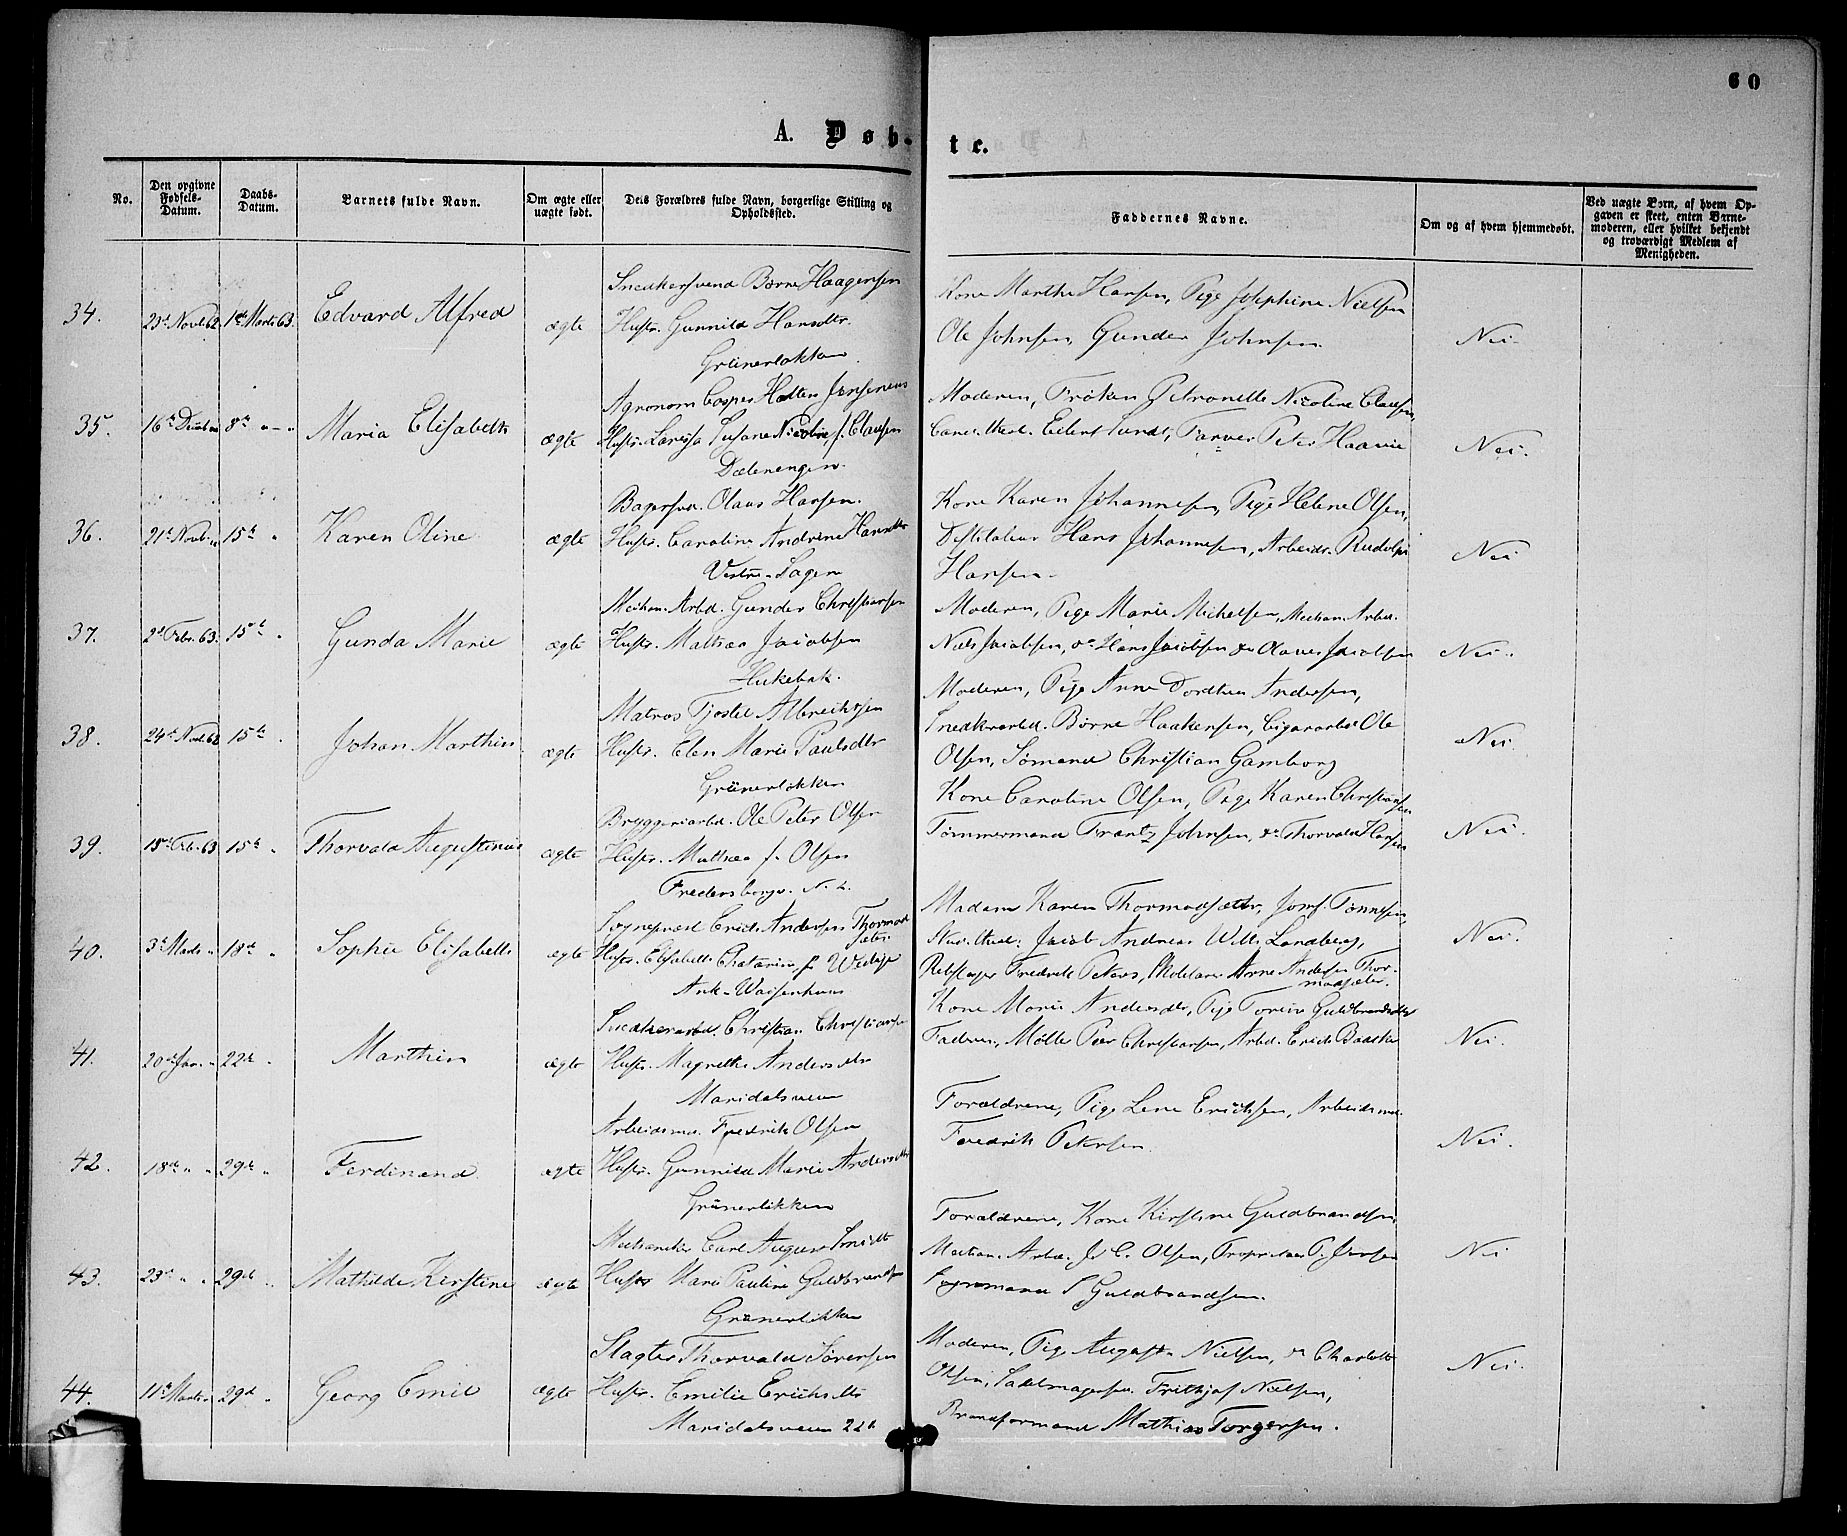 60
A. Døb-te.
No.
Den opgivne Fødsels-Datum.
Daabs-Datum.
Barnets fulde Navn.
Om ægte eller uægte født.
Dets Forældres fulde Navn, borgerlige Stilling og Opholdssted.
Faddernes Navne.
Om og af hvem hjemmedøbt.
Ved uægte Børn, af hvem Opgaven er skeet, enten Barnemoderen, eller hvilket bekjendt og troværdigt Medlem af Menigheden.
34. 23de Novb 62 1ste Marts 63. Edvard Alfred ægte
Snedkersvend Børre Haagensen
Hustr. Gunnild Hansdtr.
Grünerløkken
Kone Marthe Hansen, Pige Josephine Nielsen
Ole Johnsen, Gunder Johnsen.
Nei.
35. 16de 8de Maria Elisabeth ægte
Agronom Casper Holten Jensenius
Hustr. Lovisa Susane Nicoline f. Clausen
Dælenengen.
Moderen, Frøken Petronelle Nicoline Clausen,
Cand. theol. Eilert Sundt, Farver Peter Haavie
Nei.
36. 21de Novb. 15de Karen Oline ægte
Bagersvd. Olaus Hansen.
Hustr. Caroline Andrine Hansdtr
Vestre-Sagen
Kone Karen Johannesen, Pige Helene Olsen,
Destilateur Hans Johannesen, Arbeidr. Rudolph
Hansen
Nei
37. 2de Febr. 63. 15de Gunda Marie ægte
Mechan. Arbd. Gunder Christiansen
Hustr. Mathea Jacobsen
Hukebak.
Moderen, Pige Marie Michelsen, Mechan. Arbd.
Niels Jacobsen, do Hans Jacobsen do Olaves Jacobsen
Nei.
38. 24de Nov 62 15de Johan Marthin ægte
Matros Tjostel Albrechtsen
Hustr. Elen Marie Paulsdtr
Grünerløkken
Moderen, Pige Anne Dorthea Andersen,
Snedkerarbd. Børre Haakensen, Cigararbd Ole
Olsen, Sømand Christian Gamborg
Nei.
39. 18de Feb. 63 15de Thorvald Augustinius ægte
Bryggeriarbd. Ole Peter Olsen
Hustr. Mathea f. Olsen
Fredensborgv. N. 2.
Kone Caroline Olsen, Pige Karen Christiansen
Tømmermand Frantz Johnsen, do Thorvald Hansen
Nei.
40. 3de Marts 18de Sophie Elisabeth ægte
Sognepræst Erick Andersen Thormod
sæter
Hustr. Elisabeth f. Wedege
Ank. Waisenhuus
Madam Karen Thormodsæter, Jomf. Tønnesen,
Stud. theol. Jacob Andreas Wille Landberg,
Rebslager Fredrik Peters, Skolelærer Arne Andersen Thor-
modsæter.
Nei.
41. 20de Jan. 22de Marthin ægte
Snedkerarbd. Christian Christiansen
Hustr. Magrethe Andersdtr
Maridalsveien
Kone Marie Andersdtr, Pige Torine Guldbrandsdtr
Faderen, Møller Peer Christiansen, Arbd. Erick Baksta
Nei.
42. 18de 29de Ferdinand ægte
Arbeidsmd. Fredrik Olsen
Hustr. Gunnild Marie Andersdtr
Grünerløkken
Forældrene, Pige Lene Ericksen, Arbeidsmd.
Fredrik Petersen.
Nei.
43. 23de 29de Mathilde Kirstine ægte
Mechaniker Carl August Smidt
Hustr Marie Pauline Guldbrandsen
Grünerløkken
Forældrene, Kone Kirstine Guldbrandsen,
Mechan. Arbd. J. C. Olsen, Proprietær P. Jensen
S Guldbrandsen.
Nei
44. 11te Marts 29de Georg Emil ægte
Slagter Thorvald Sørensen
Hustr. Emilie Ericksdtr
Maridalsveien 22b
Moderen, Pige Augusta Nielsen, do Charlotte
Olsen, Sadelmagersv. Frithjof Nielsen,
Brandformand Mathias Torgersen.
Nei.